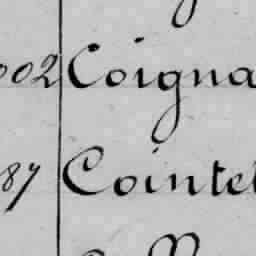 002 Coigna
87 Cointet